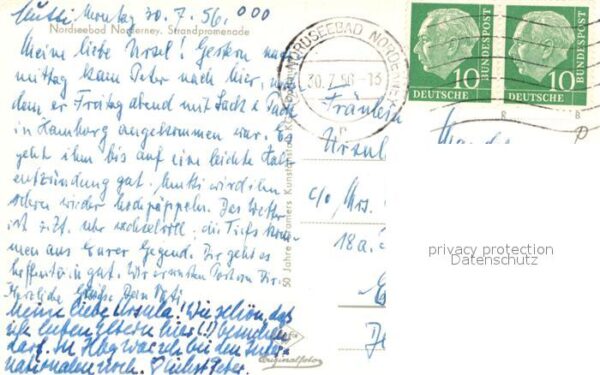 Mutti Montag 30.7.56. 000
Nordseebad Norderney. Strandpromenade
Meine liebe Ursel! Gestern nach-
mittag kam Peter nach hier, nach-
dem er Freitag abend mit Sack & Pack
in Hamburg angekommen war. Es
geht ihm bis auf eine leichte Hals-
entzündung gut. Mutti wird ihn
schon wieder hochpäppeln. Das Wetter
ist z. Zt. sehr wechselvoll, die Tiefs kom-
men aus Eurer Gegend. Dir geht es
hoffentlich gut. Wir erwarten Post von Dir.
Herzliche Grüsse Dein Vati
Meine liebe Ursula! Wie schön, daß
ich lieben Eltern hier (!) besuchen
darf. In Hbg war ich bei den Inter-
nationalen noch. Peter.
50 Jahre Kramers Kunstanstalt
Originalfoto
NORDSEEBAD NORDERNEY
30.7.56-18
10
DEUTSCHE
BUNDESPOST
10
DEUTSCHE
BUNDESPOST
R
B
Fräulein
Ursul
c/o Mrs.
18a
privacy protection
Datenschutz